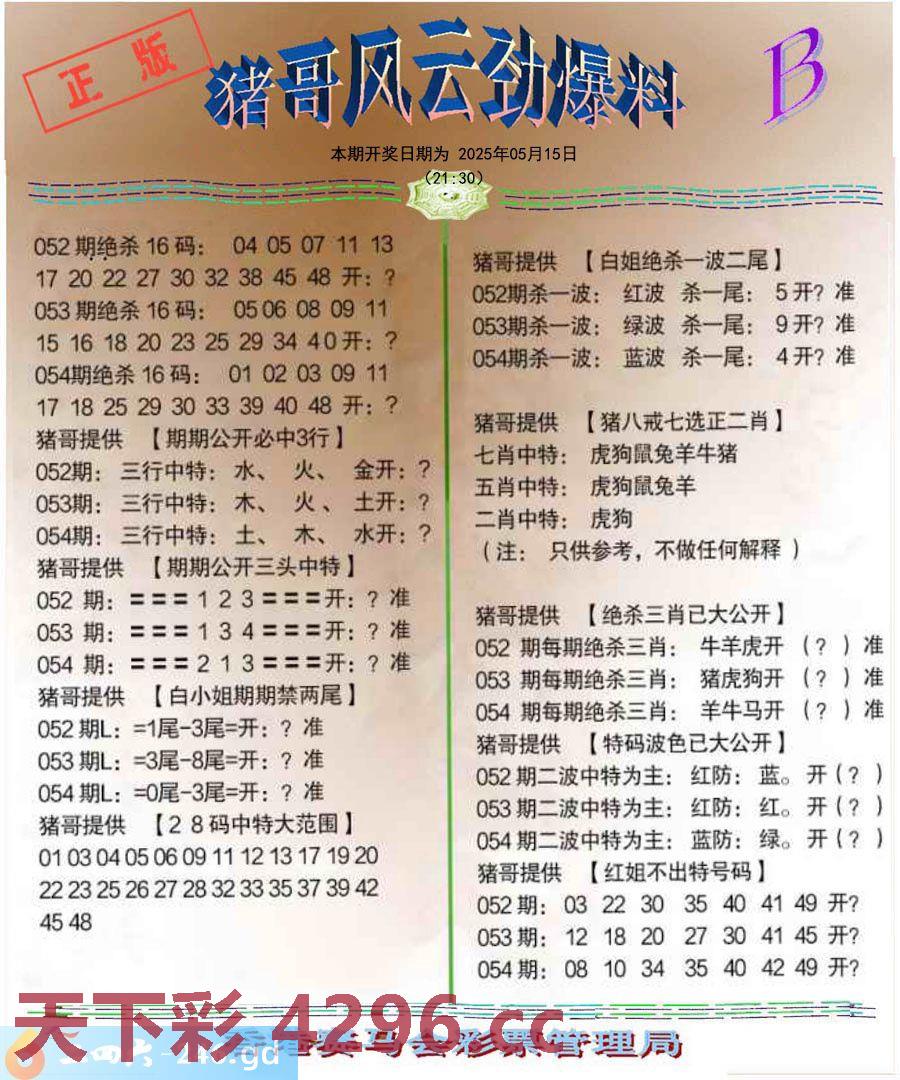 正版
猪哥风云劲爆料
B
本期开奖日期为 2025年05月15日
(21:30)
052期绝杀16码： 04 05 07 11 13
17 20 22 27 30 32 38 45 48 开：？
053期绝杀16码： 05 06 08 09 11
15 16 18 20 23 25 29 34 40开：？
054期绝杀16码： 01 02 03 09 11
17 18 25 29 30 33 39 40 48 开：？
猪哥提供 【期期公开必中3行】
052期： 三行中特： 水、 火、 金开：？
053期： 三行中特： 木、 火、 土开：？
054期： 三行中特： 土、 木、 水开：？
猪哥提供 【期期公开三头中特】
052 期：===1 2 3===开：？准
053 期：===1 3 4===开：？准
054 期：===2 1 3===开：？准
猪哥提供 【白小姐期期禁两尾】
052期L：=1尾-3尾=开：？准
053期L：=3尾-8尾=开：？准
054期L：=0尾-3尾=开：？准
猪哥提供 【28码中特大范围】
01 03 04 05 06 09 11 12 13 17 19 20
22 23 25 26 27 28 32 33 35 37 39 42
45 48
猪哥提供 【白姐绝杀一波二尾】
052期杀一波： 红波 杀一尾： 5开？准
053期杀一波： 绿波 杀一尾： 9开？准
054期杀一波： 蓝波 杀一尾： 4开？准
猪哥提供 【猪八戒七选正二肖】
七肖中特： 虎狗鼠兔羊牛猪
五肖中特： 虎狗鼠兔羊
二肖中特： 虎狗
（注： 只供参考，不做任何解释 ）
猪哥提供 【绝杀三肖已大公开】
052 期每期绝杀三肖： 牛羊虎开 （？）准
053 期每期绝杀三肖： 猪虎狗开 （？）准
054 期每期绝杀三肖： 羊牛马开 （？）准
猪哥提供 【特码波色已大公开】
052期二波中特为主：红防：蓝。开（？）
053期二波中特为主：红防：红。开（？）
054期二波中特为主：蓝防：绿。开（？）
猪哥提供 【红姐不出特号码】
052期： 03 22 30 35 40 41 49 开？
053期： 12 18 20 27 30 41 45 开？
054期： 08 10 34 35 40 42 49 开？
天下彩 4296.cc
马会彩票管理局